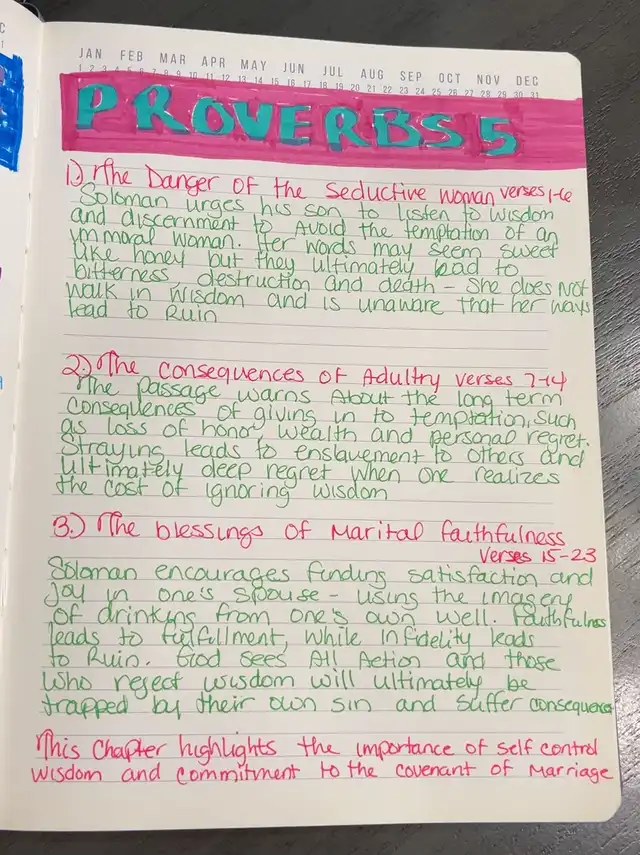 JAN FEB MAR APR MAY JUN JUL AUG SEP OCT NOV DEC
1 2 3 4 5 6 7 8 9 10 11 12 13 14 15 16 17 18 19 20 21 22 23 24 25 26 27 28 29 30 31
PROVERBS 5
1.) The Danger of the Seductive Woman verses 1-6
Soloman urges his son to listen to wisdom
and discernment to Avoid the temptation of an
immoral woman. Her words may seem sweet
like honey but they ultimately lead to
bitterness, destruction and death - She does Not
walk in wisdom and is unaware that her ways
lead to Ruin
2.) The consequences of Adultry verses 7-14
The passage warns About the long term
consequences of giving in to temptation, such
as loss of honor, wealth and personal regret.
Straying leads to enslavement to others and
ultimately deep regret when one realizes
the cost of ignoring wisdom
3.) The blessings of Marital faithfulness
Verses 15-23
Soloman encourages finding satisfaction and
joy in one's spouse - using the imagery
of drinking from one's own well. Faithfulness
leads to fulfillment, while infidelity leads
to Ruin. God sees All Action and those
who reject wisdom will ultimately be
trapped by their own sin and suffer consequences
This chapter highlights the importance of self control
wisdom and commitment to the covenant of Marriage